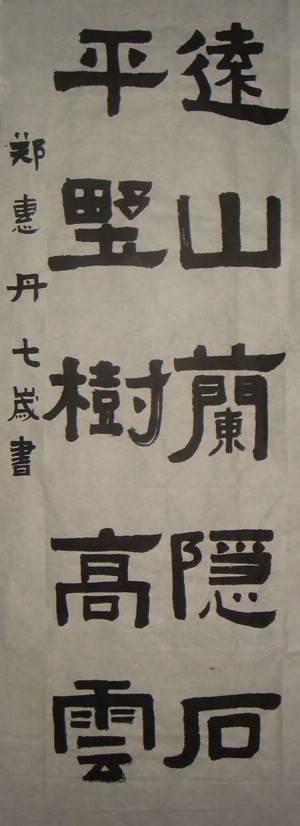 遠山蘭隐石
平墅樹高雲
郑惠丹七歲書